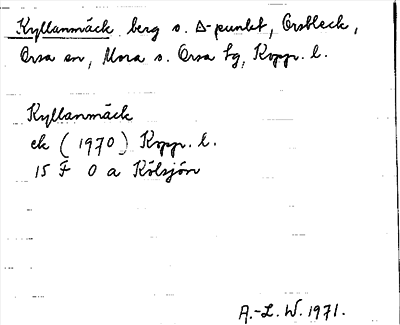 Kyllanmäck berg o. Δ-punkt, Orsbleck,
Orsa sn, Mora o. Orsa tg, Kopp. l.
Kyllanmäck
ek (1970) Kopp. l.
15 F 0 a Kölsjön
A.-L. W. 1971.